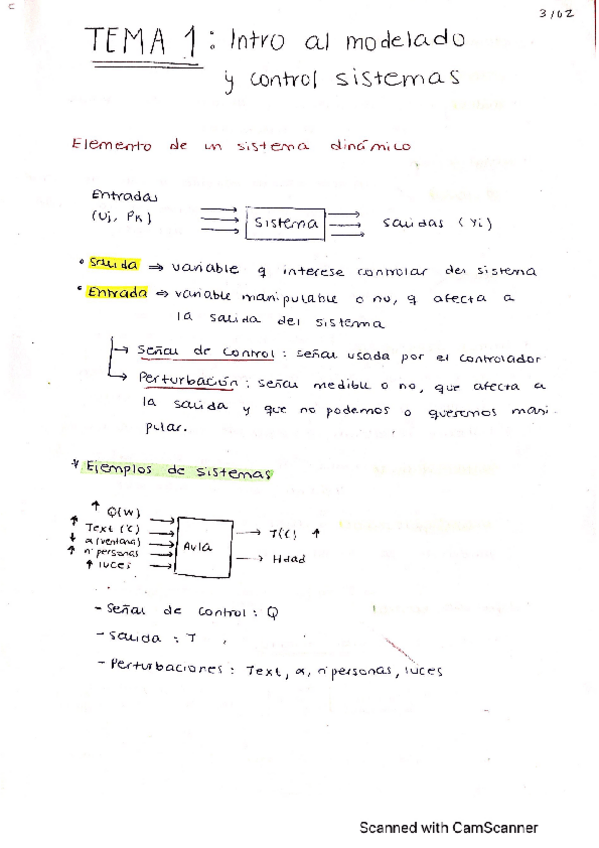 3/02
TEMA 1: Intro al modelado
y control sistemas
Elemento de un sistema dinámico
Entradas
(Uj, Pk)
Sistema
salidas (Yi)
• Salida ⇒ variable q interese controlar del sistema
• Entrada ⇒ variable manipulable o no, q afecta a
la salida del sistema
↳ Señal de control: señal usada por el controlador
↳ Perturbación: señal medible o no, que afecta a
la salida y que no podemos o queremos mani-
pular.
* Ejemplos de sistemas
↑ Q(W)
↑ Text (ºC)
↓ α(ventana)
↑ nº personas
↑ luces
Aula
T(ºC) ↑
Hdad
- Señal de control: Q
- Salida: T
- Perturbaciones: Text, α, nº personas, luces
Scanned with CamScanner